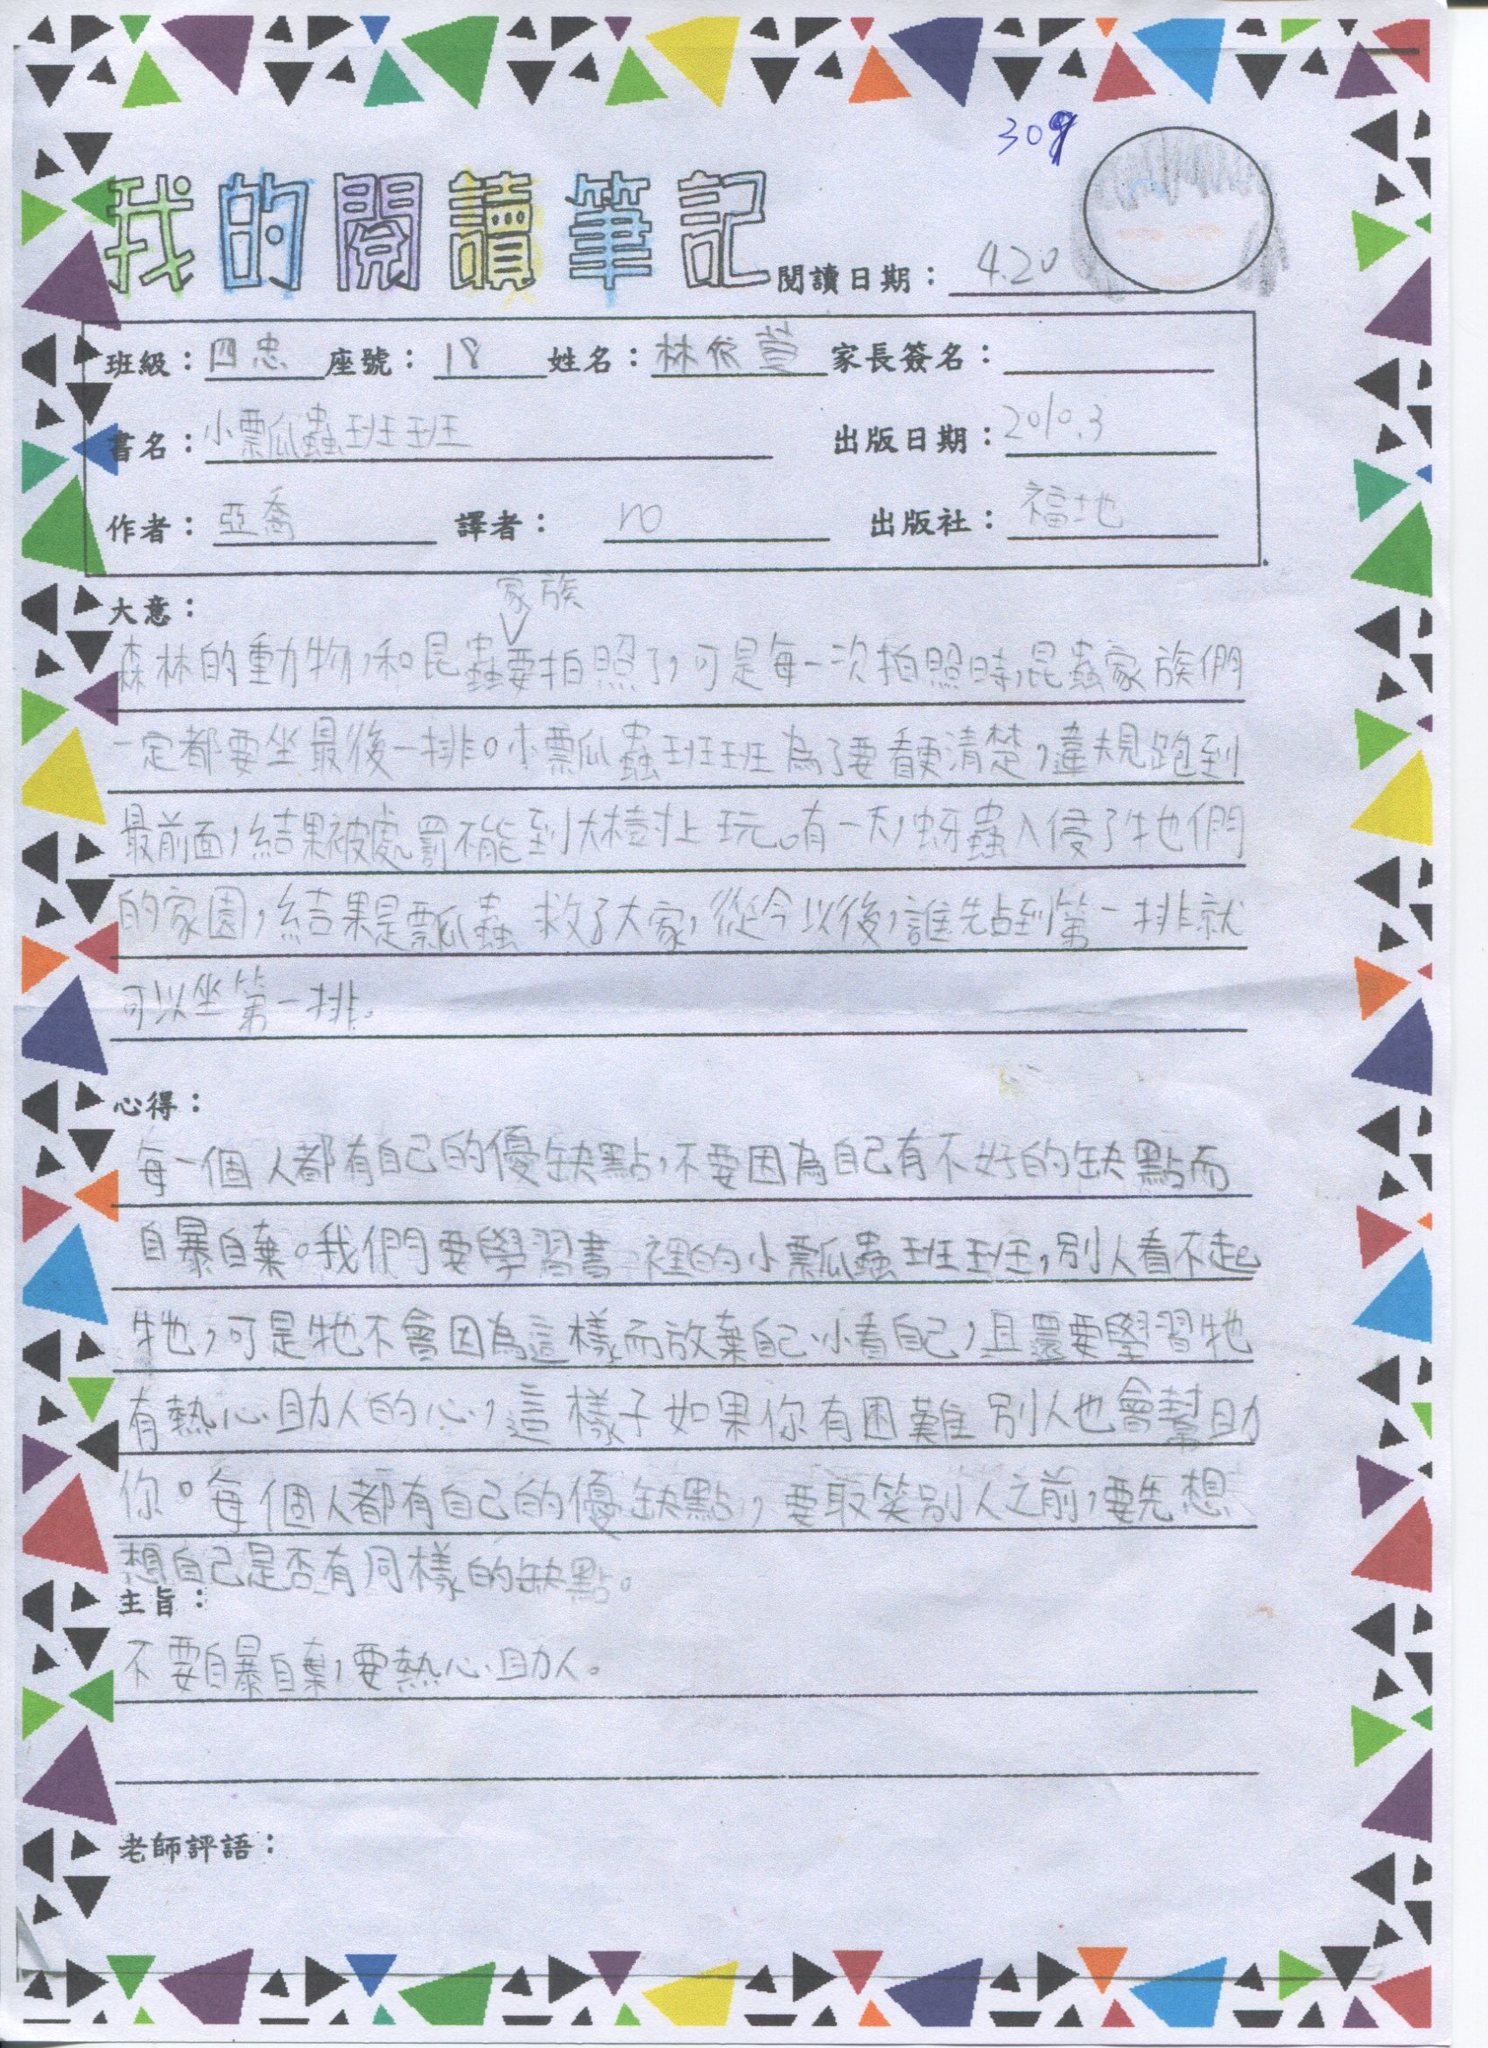 309
我的閱讀筆記
閱讀日期：4.20
班級：四忠 座號：18 姓名：林依萱 家長簽名：
書名：小瓢瓜蟲班班 出版日期：2010.3
作者：亞喬 譯者：no 出版社：福地
大意：
家族
森林的動物,和昆蟲要拍照了,可是每一次拍照時,昆蟲家族們
一定都要坐最後一排。小瓢瓜蟲班班為了要看更清楚,違規跑到
最前面,結果被處罰不能到大樹上玩。有一天,蚜蟲入侵了牠們
的家園,結果是瓢瓜蟲救了大家,從今以後,誰先占到第一排就
可以坐第一排。
心得：
每一個人都有自己的優缺點,不要因為自己有不好的缺點而
自暴自棄。我們要學習書裡的小瓢瓜蟲班班,別人看不起
牠,可是牠不會因為這樣而放棄自己、小看自己,且還要學習牠
有熱心助人的心,這樣子如果你有困難別人也會幫助
你。每個人都有自己的優缺點,要取笑別人之前,要先想
想自己是否有同樣的缺點。
主旨：
不要自暴自棄,要熱心助人。
老師評語：